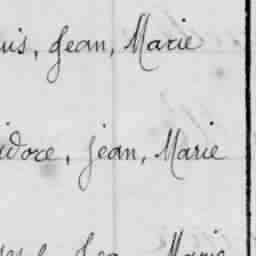 uis, Jean, Marie
idore, Jean, Marie